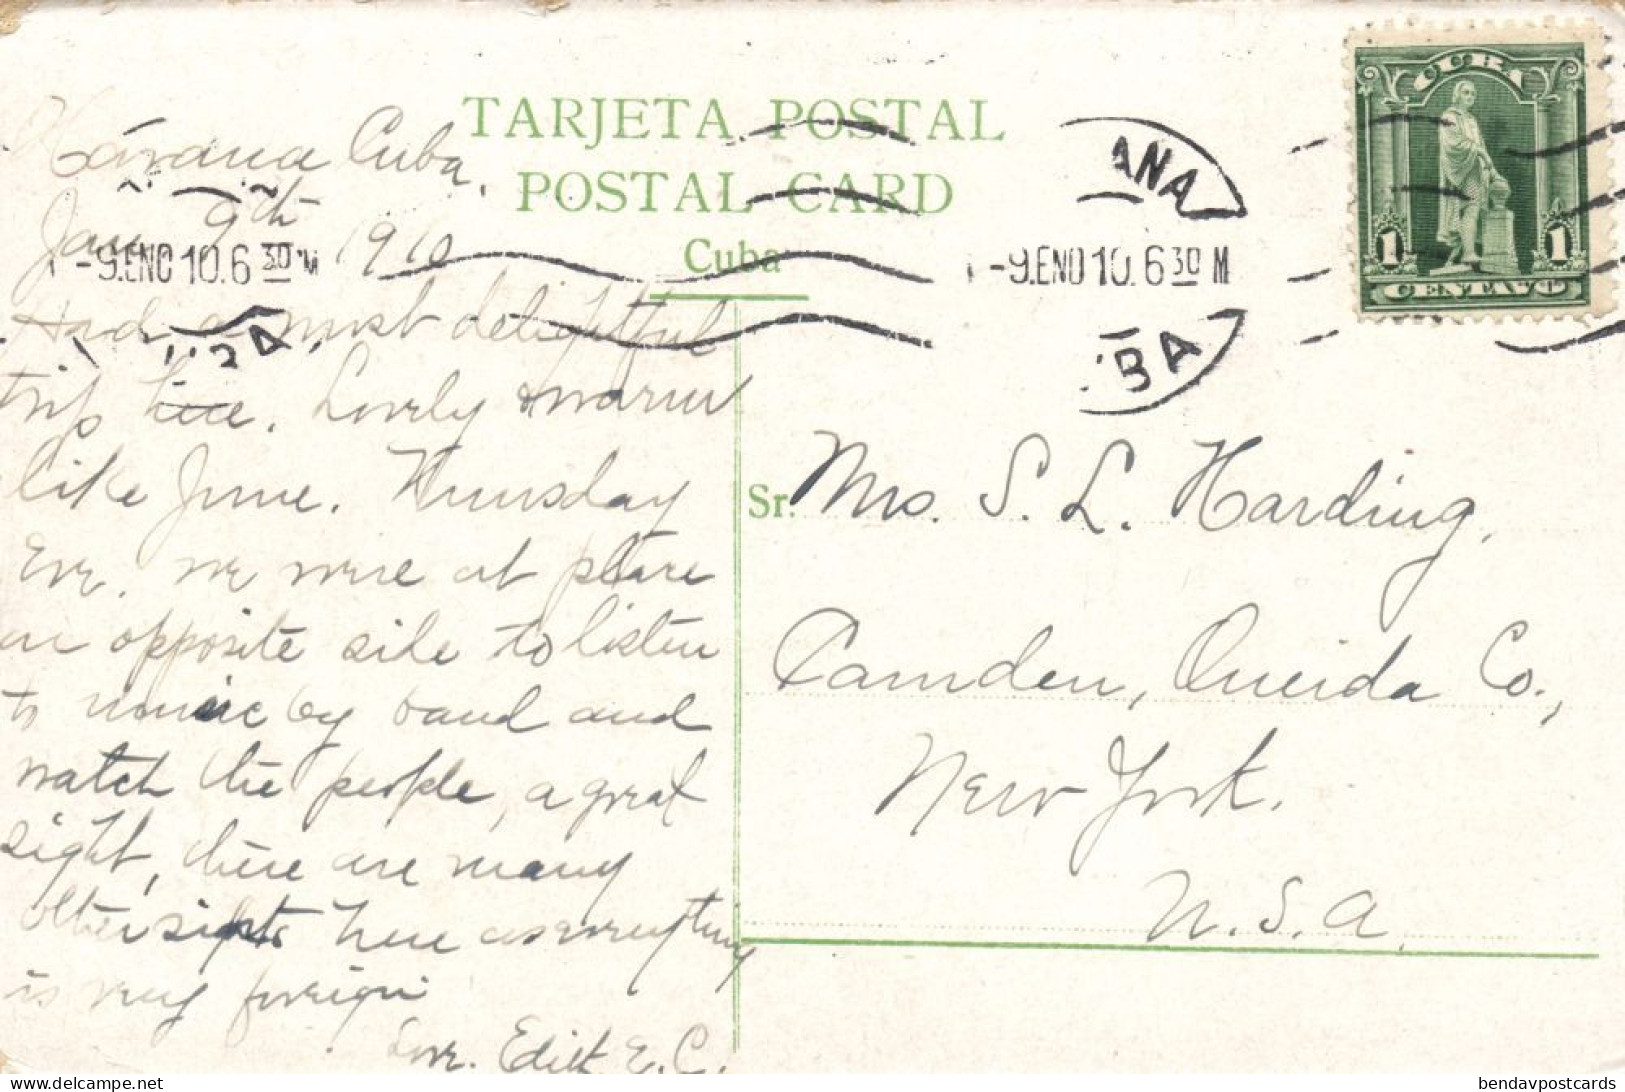 TARJETA POSTAL
POSTAL CARD
Cuba
CUBA
1 1
CENTAVO
ANA
-9.ENO 10. 6 30 M
BA
-9.ENO 10. 6 30 M
Havana Cuba.
Jan 9th 1910
Had a most delightful
trip here. Lovely & warm
like June. Thursday
Eve. we were at place
on opposite side to listen
to music by band and
watch the people, a great
sight, there are many
other sights here as everything
is very foreign
Love. Edith E. C.
Sr. Mrs. S. L. Harding,
Camden, Oneida Co.,
New York.
U.S.A.
delcampe.net
bendavpostcards